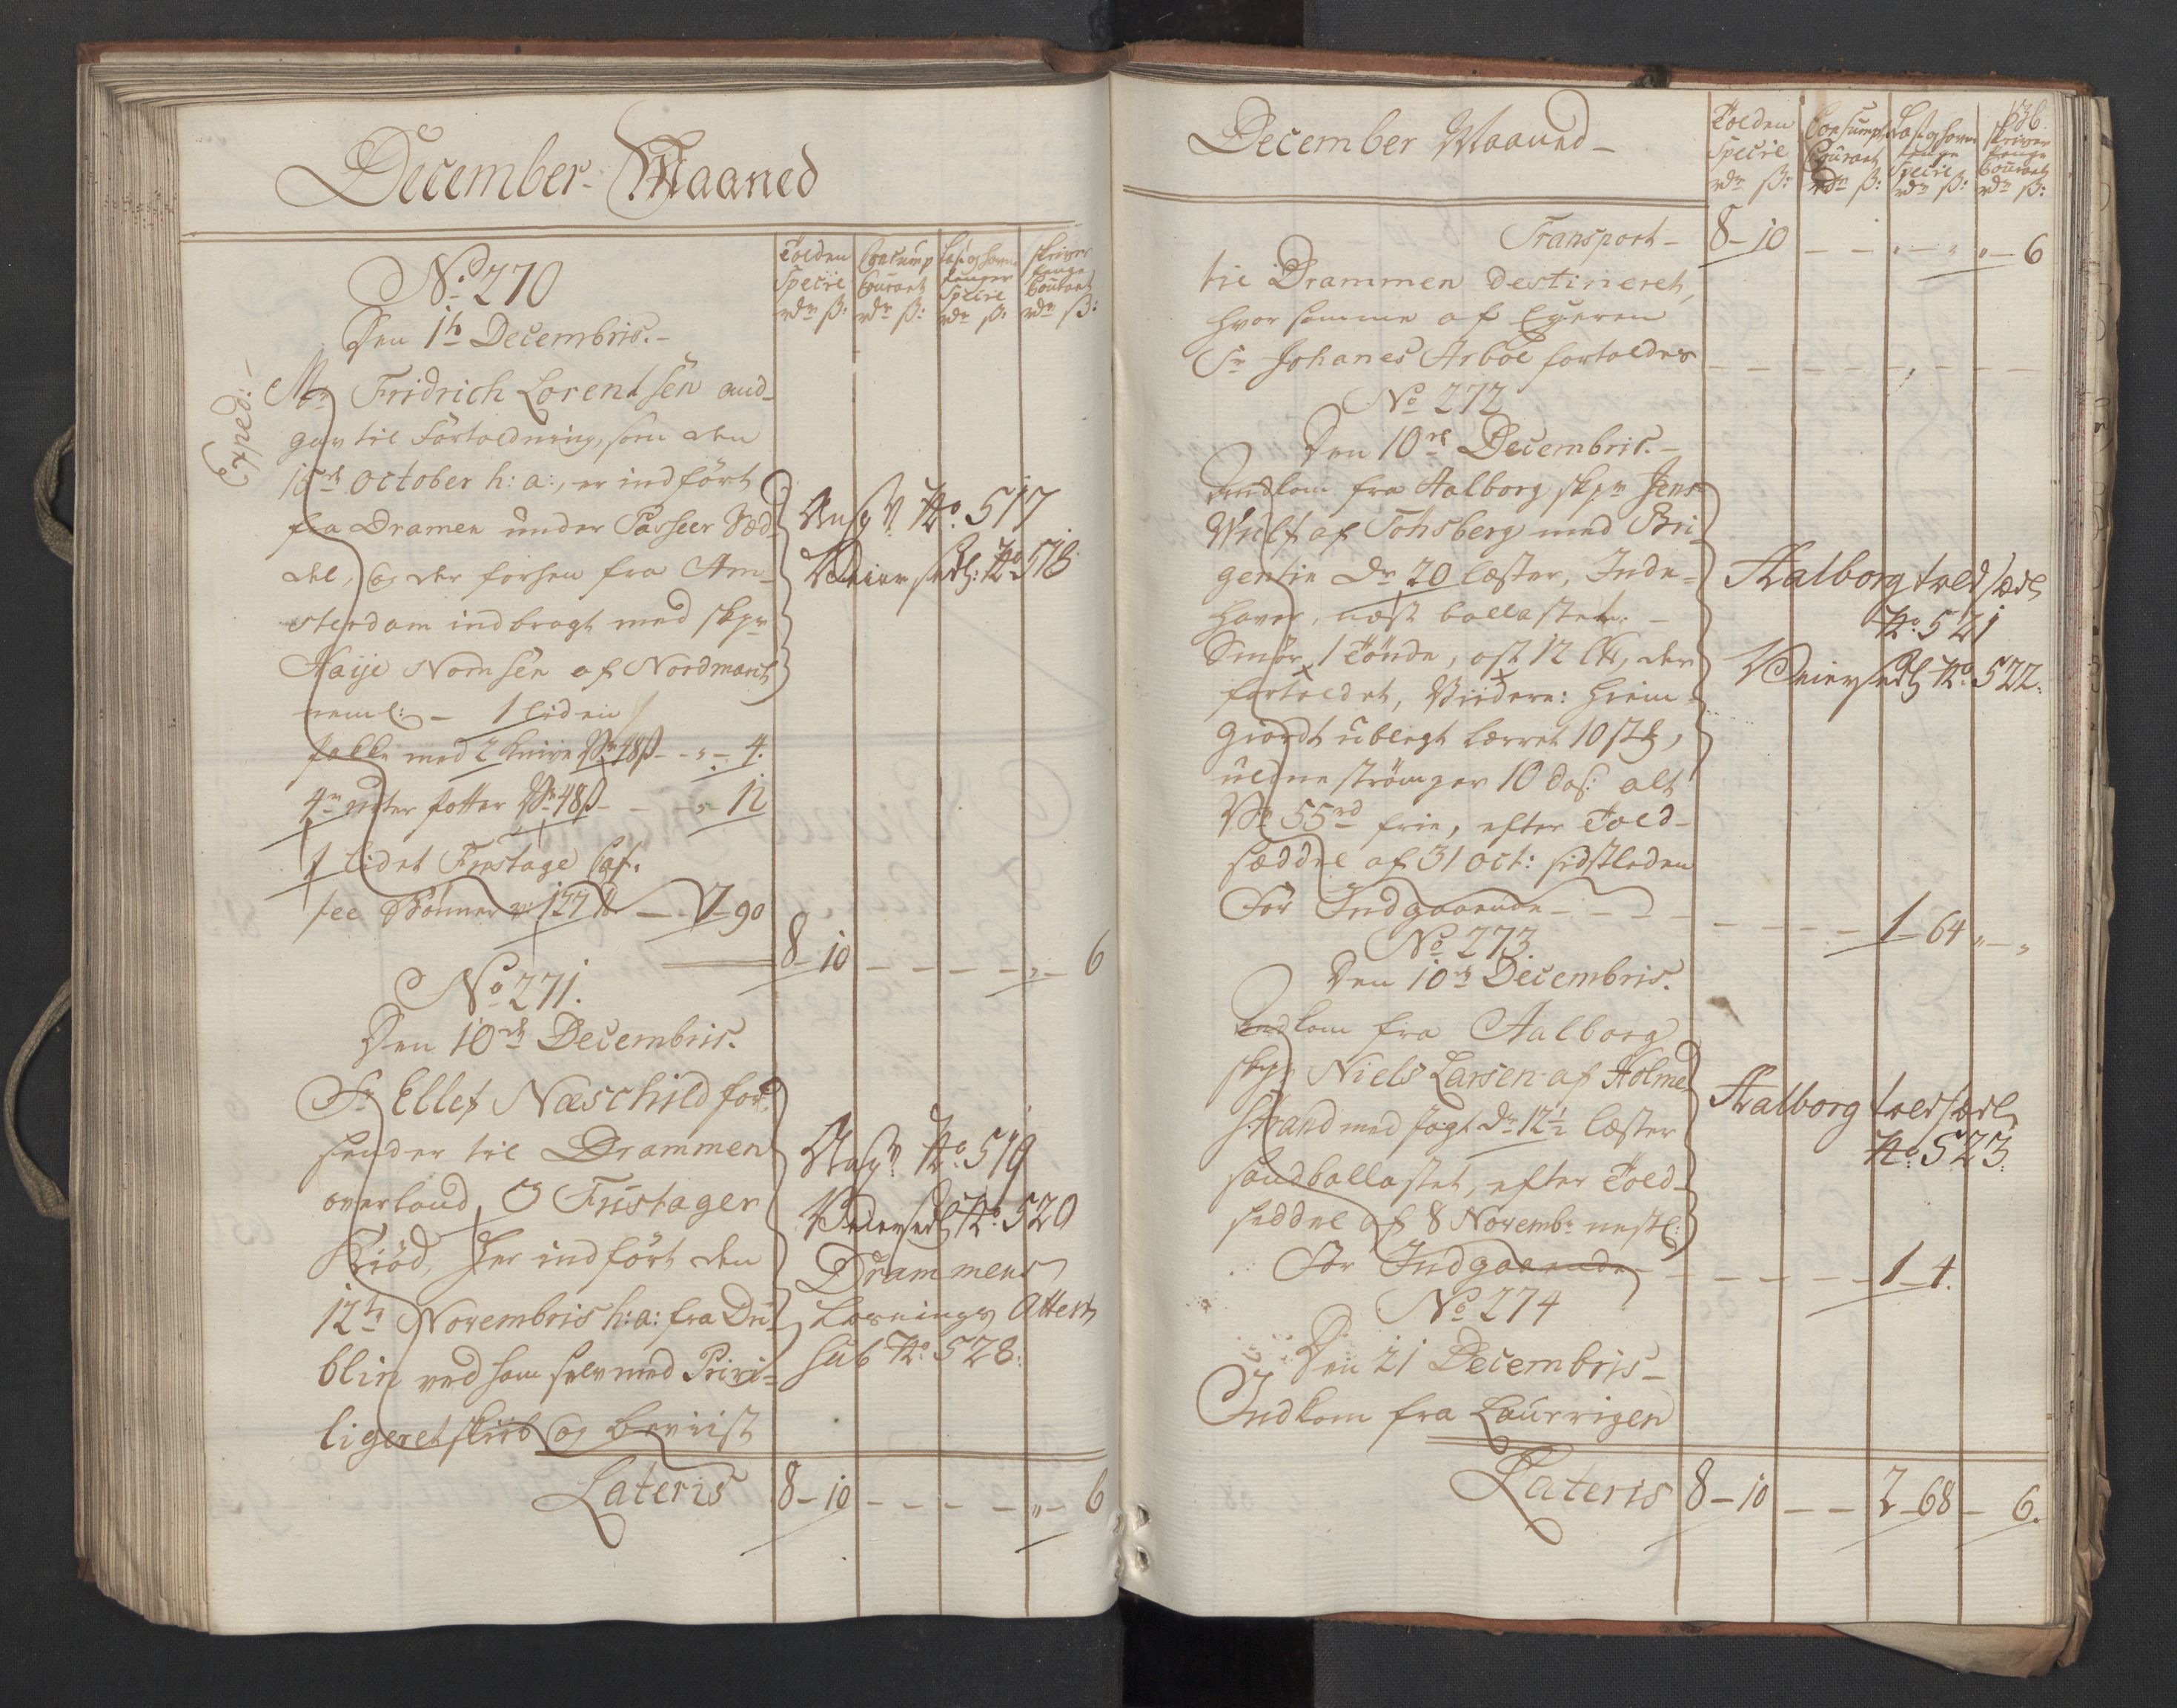 December Maaned
Tolden Specie rdr ß:
Consumpt Courant rdr ß:
Last og havne penger Specie rdr ß:
skriver penge Courant rdr ß:
No 270
Den 1te Decembris.
Exped:
Mr Fridrich Lorentsen and-
gav til Fortoldning, som den
15de October h: a:, er indført
fra Dramen under Passeer Sed-
del, og der forhen fra Am-
sterdam indbragt med skpr
Haye Nomsen af Nordmark
neml: - 1 liden
fokke med 2 knive Vr 48ß - „ - 4.
4re meter potter Vr 48ß - - „ - 12
1 lidet Fustage Caf-
fee Bønner Wr 127 lb - 7-90
Angr No. 517
Veiersedl: No 518
8-10 - - - - „- 6
No 271.
Den 10de Decembris.
Sr Ellef Næschild for-
sender til Drammen
overland, 3 Fustager
Kiød, her indført den
12te Novembris h: a: fra Du-
blin ved ham selv med Privi-
ligeret skiib og beviist
Angr No. 519
Veiersedl No. 520
Drammens
Losnings Attest
sub No. 528.
Lateris 8-10 - - - - „- 6
December Maaned -
536.
Tolden Specie rdr ß:
Consumpt Courant rdr ß:
Last og havne penge Specie rdr ß:
skriver penge Courant rdr ß:
Transport - 8-10 - - „ - „ „- 6
til Drammen destineret,
hvor samme af Eyeren
Sr Johanes Arboe fortoldes
No 272
Den 10de Decembris. -
Indkom fra Aalborg skpr Jens
Wulf af Tohsberg med Bri-
gentin dr 20 læster, Inde-
haver, næst ballastet: -
Smør 1 Tønde, ost 12 lb, der
fortoldet, Viidere: hiem-
giordt ublegt lærret 10 stk,
uldne strømper 10 dos: alt
Vr 55 rd frie, efter Told-
sæddel af 31 oct: sidstleden
For Indgaaende - - - 1-64 „- „
Aalborg toldsædl
No. 521
Veiersedl No. 522.
No 273.
Den 10de Decembris.
Indkom fra Aalborg
skpr Niels Larsen af Holme-
strand med Jagt dr 12½ læster
sandballastet, efter Told-
seddel af 8 Novembr nestl:
For Indgaaende - - - 1-4.
Aalborg toldsædl
No. 523.
No 274
Den 21 Decembris -
Indkom fra Laurvigen
Lateris 8-10 - - 2-68 - 6.